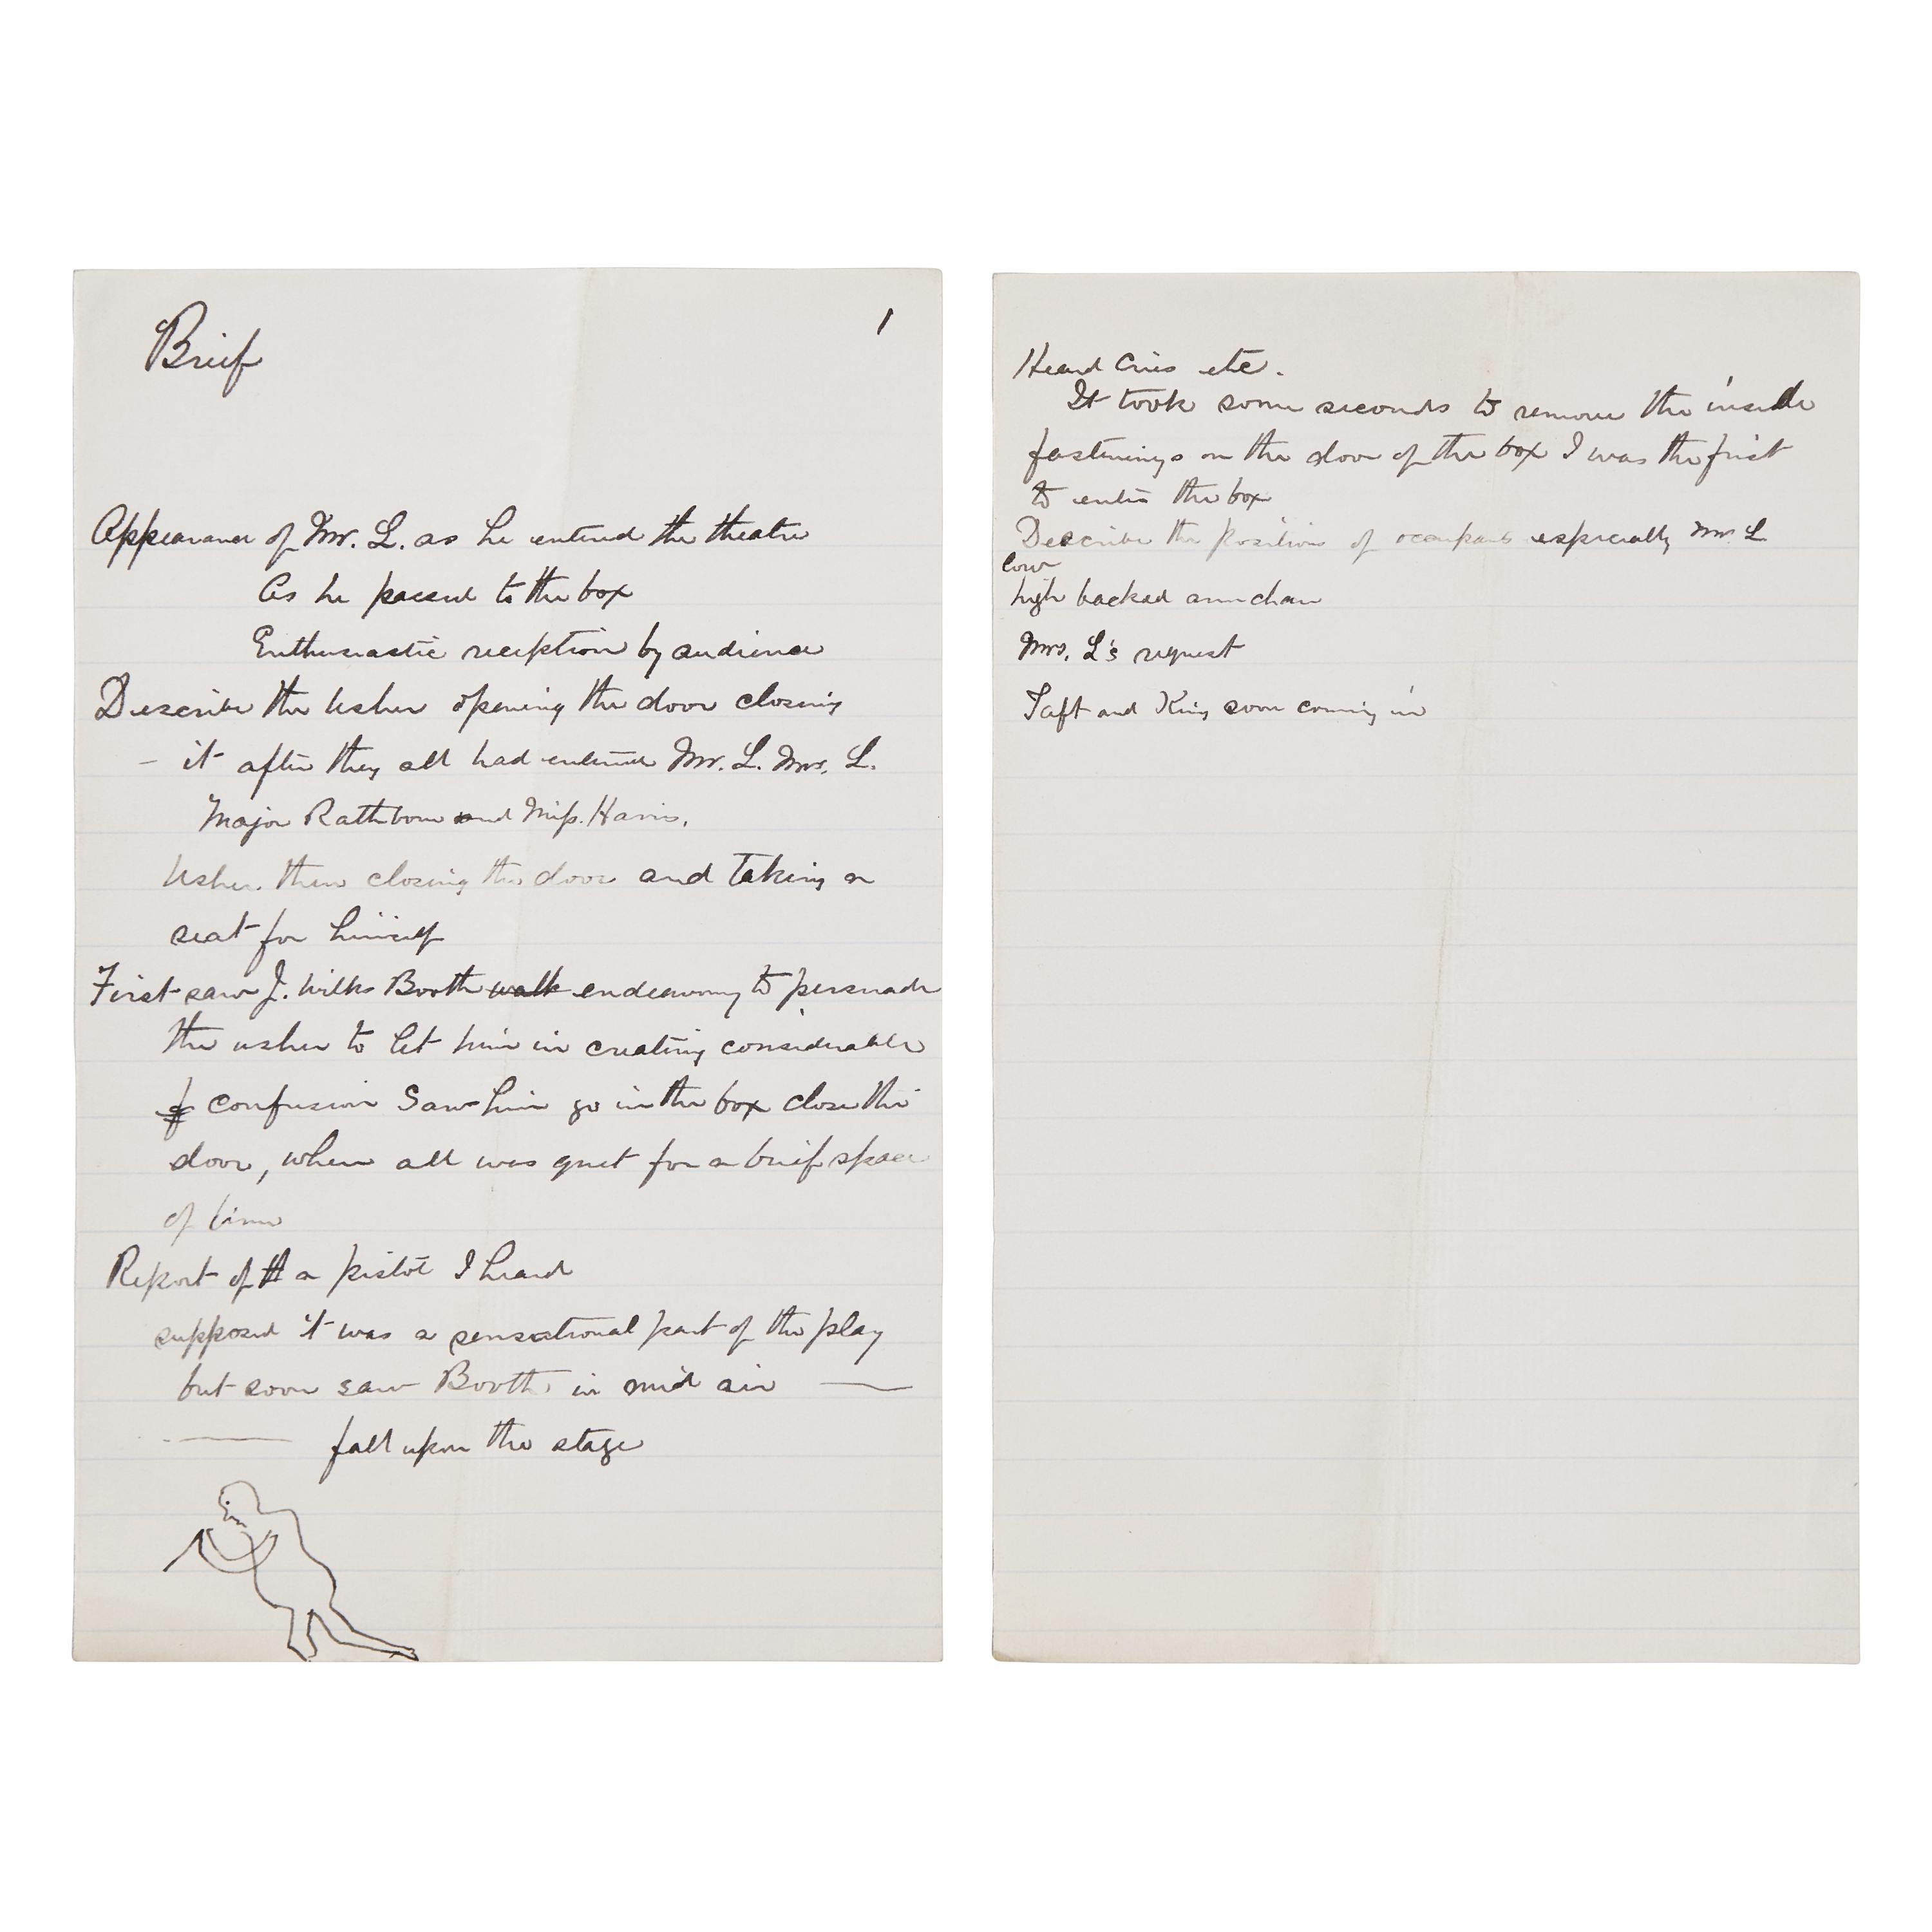 Brief
1
Appearance of Mr. L. as he entered the theatre
As he passed to the box
Enthusiastic reception by audience
Describe the Usher opening the door closing
– it after they all had entered Mr. L. Mrs. L.
Major Rathbone and Miss. Harris.
Usher. then closing the door and taking a
seat for himself
First saw J. Wilks Booth walk endeavoring to persuade
the usher to let him in creating considerable
confusion Saw him go in the box close the
door, when all was quiet for a brief space
of time
Report of th a pistol I heard
supposed it was a sensational part of the play
but soon saw Booth in mid air —
— fall upon the stage
Heard Cries etc.
It took some seconds to remove the inside
fastenings on the door of the box I was the first
to enter the box
Describe the positions of occupants especially Mr. L
low
high backed arm chair
Mrs. L's request
Taft and King soon coming in